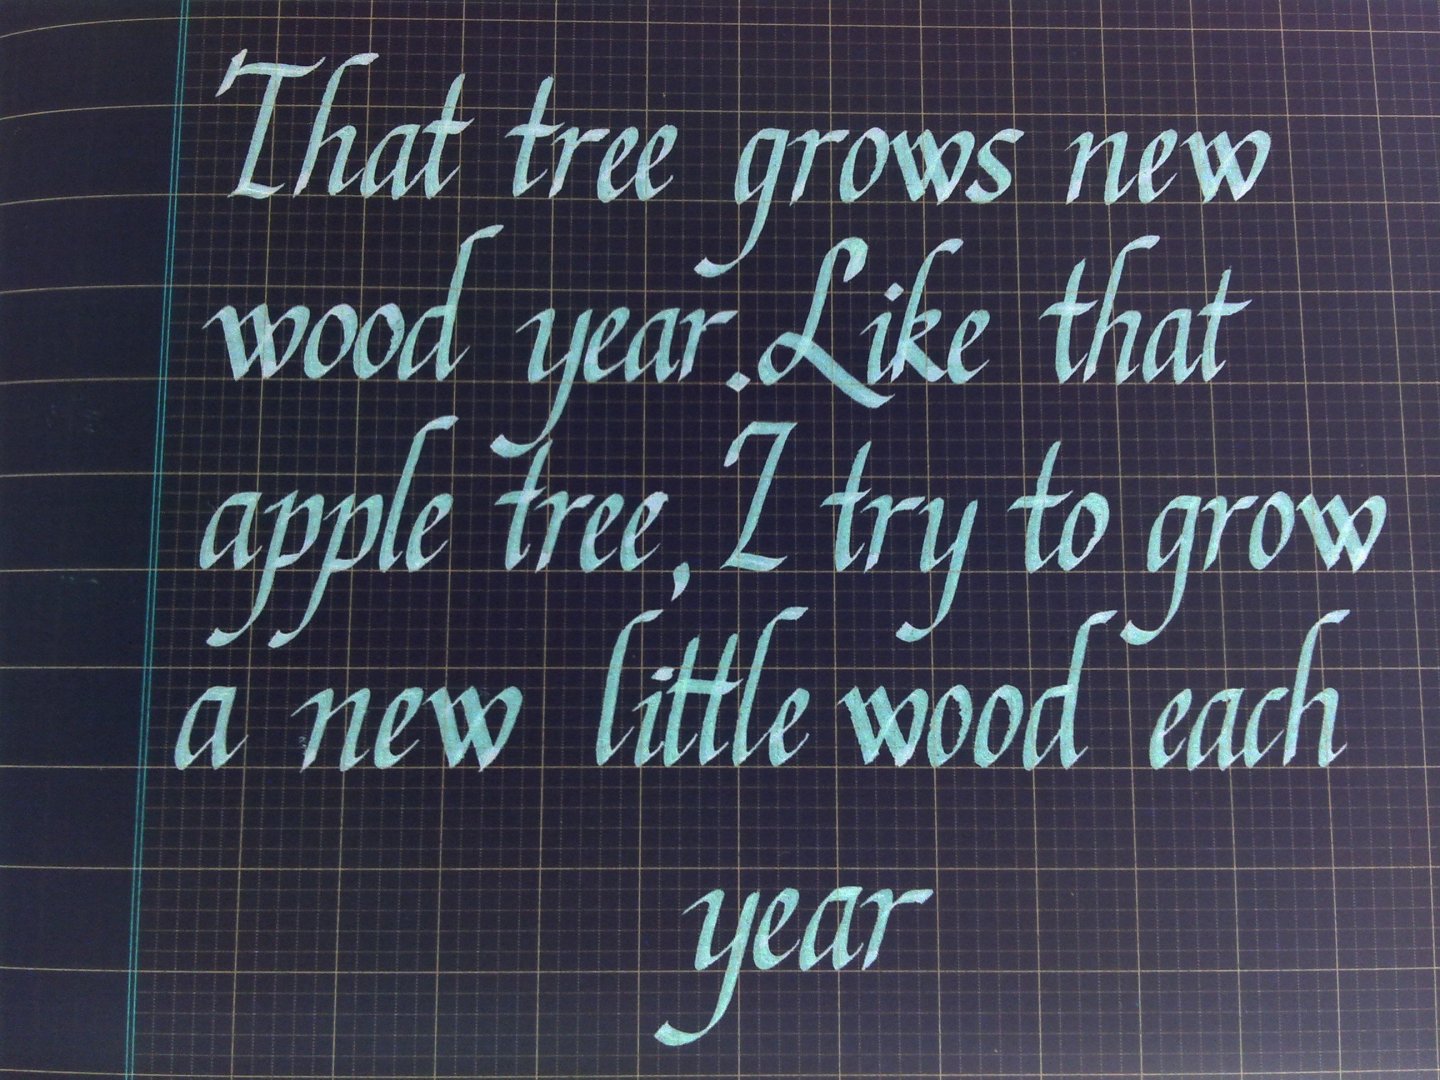 That tree grows new
wood year. Like that
apple tree, I try to grow
a new little wood each
year